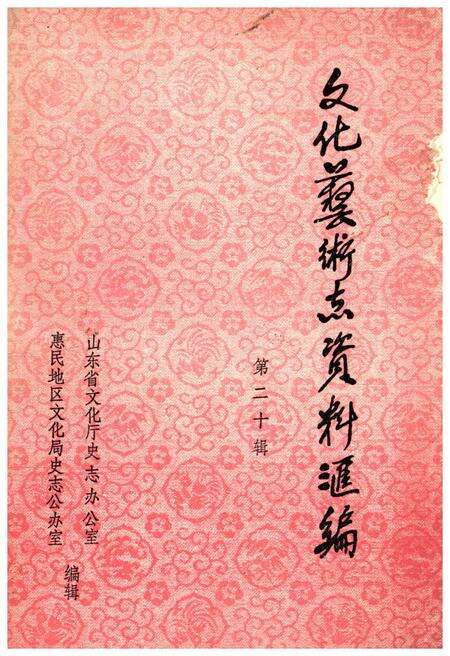 文化藝術志資料滙编
第二十辑
山东省文化厅史志办公室
惠民地区文化局史志公办室
编辑